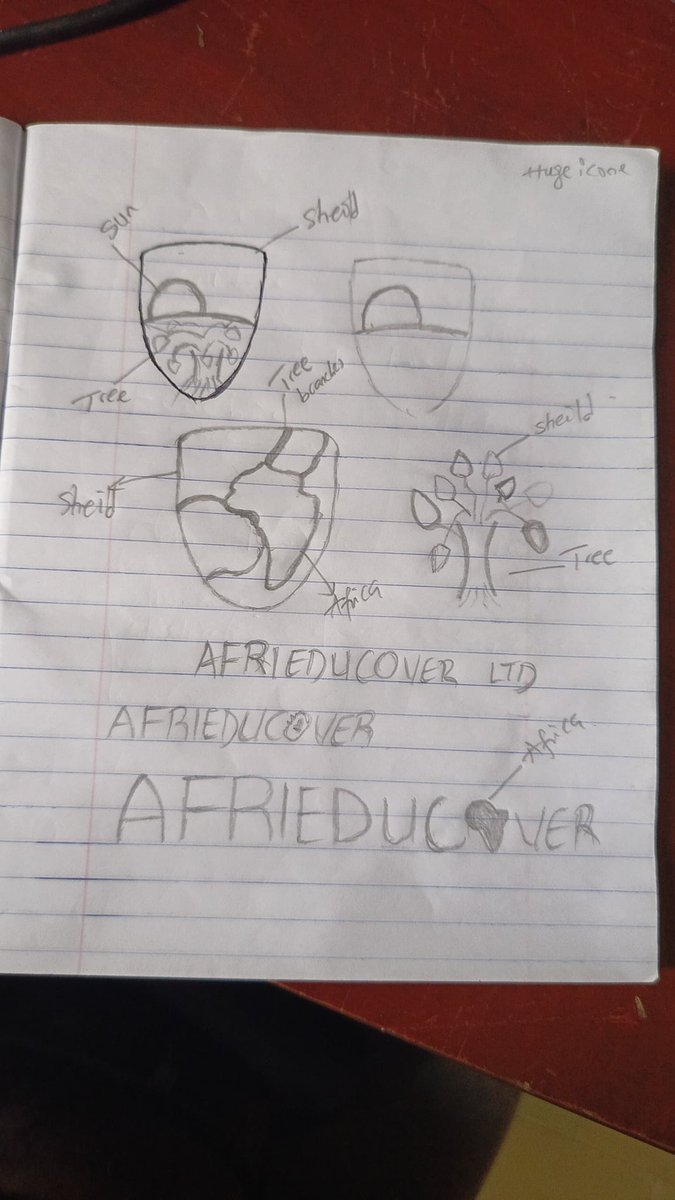 Huge icone
Sun
Sheild
Tree
Tree
branches
Sheild
sheild
Tree
Africa
AFRIEDUCOVER LTD
AFRIEDUCOVER
Africa
AFRIEDUCOVER